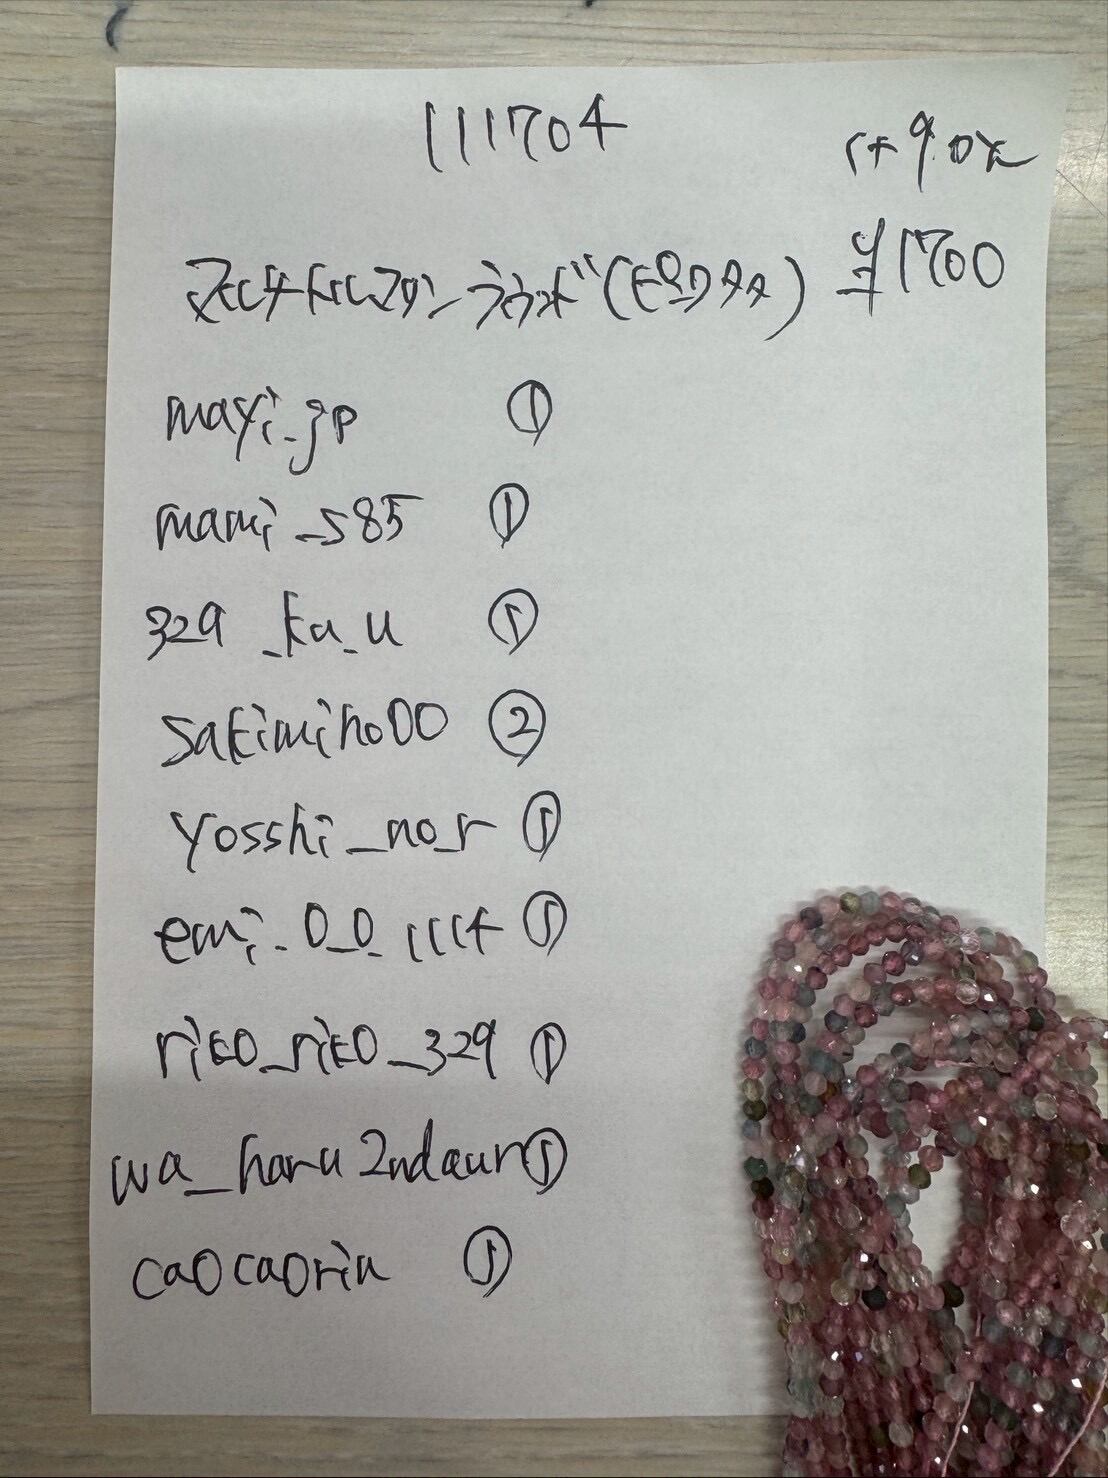 111704
¥1700
マルチトルマリンラウンド(ピンクタタ)
mayi_jp ①
mami_s85 ①
329_ka_u ①
sakimiho00 ②
yosshi_no_r ①
emi_0_0_1114 ①
riko_riko_329 ①
wa_haru2ndaur ①
caocaorin ①